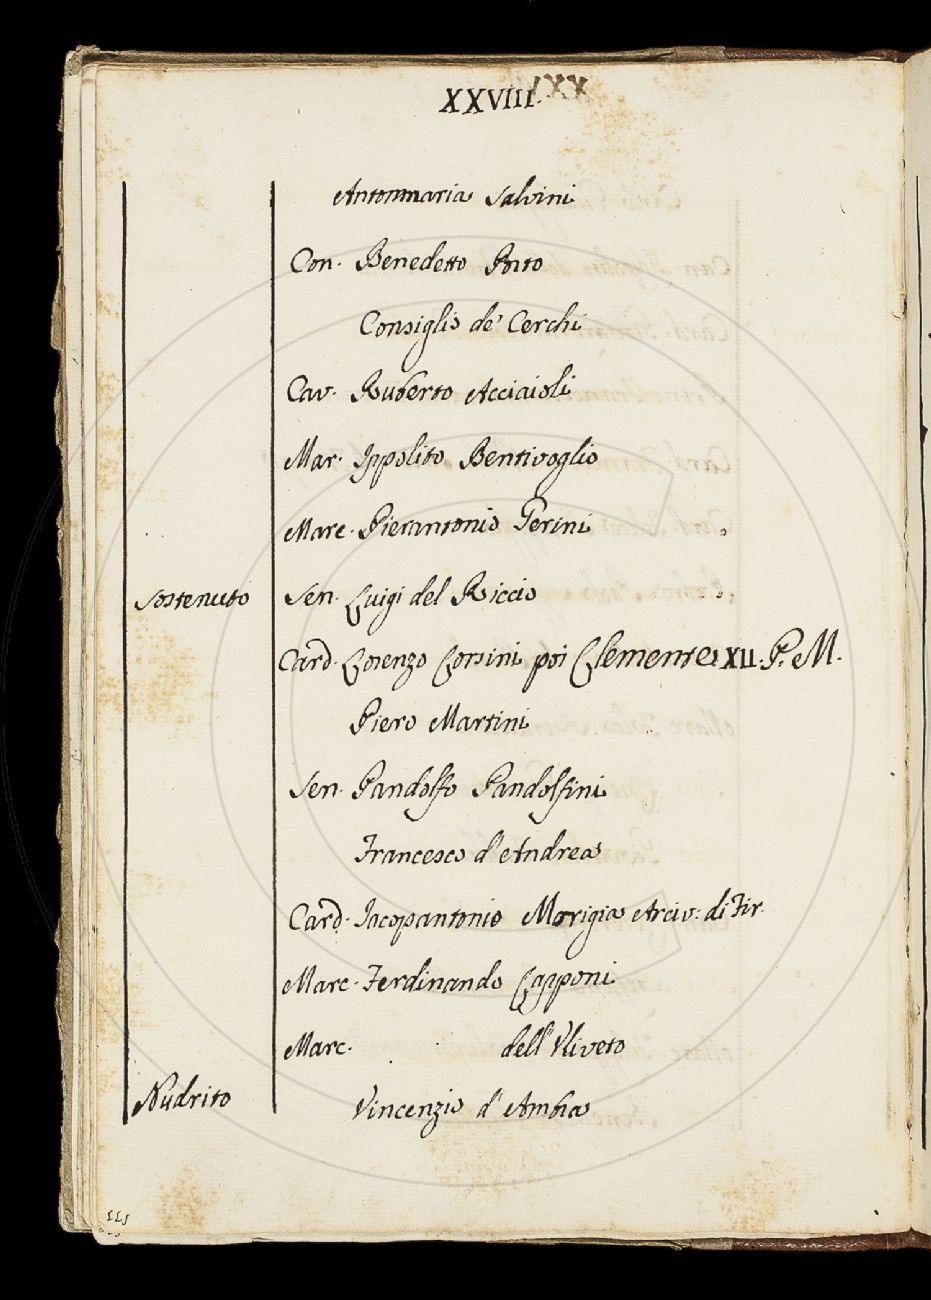 XXVIII.
Antonmaria Salvini
Con. Benedetto
Consiglio de' Cerchi
Cav. Ruberto Acciaioli
Mar. Ippolito Bentivoglio
Marc. Pierantonio Gerini
Sostenuto Sen. Luigi del Riccio
Card. Lorenzo Corsini poi Clemente XII. P. M.
Piero Martini
Sen. Pandolfo Pandolfini
Francesco d'Andrea
Card. Iacopantonio Morigia Arciv: di Fir.
Marc. Ferdinando Capponi
Marc. dell' Vliveto
Nudrito Vincenzio d' Ambra